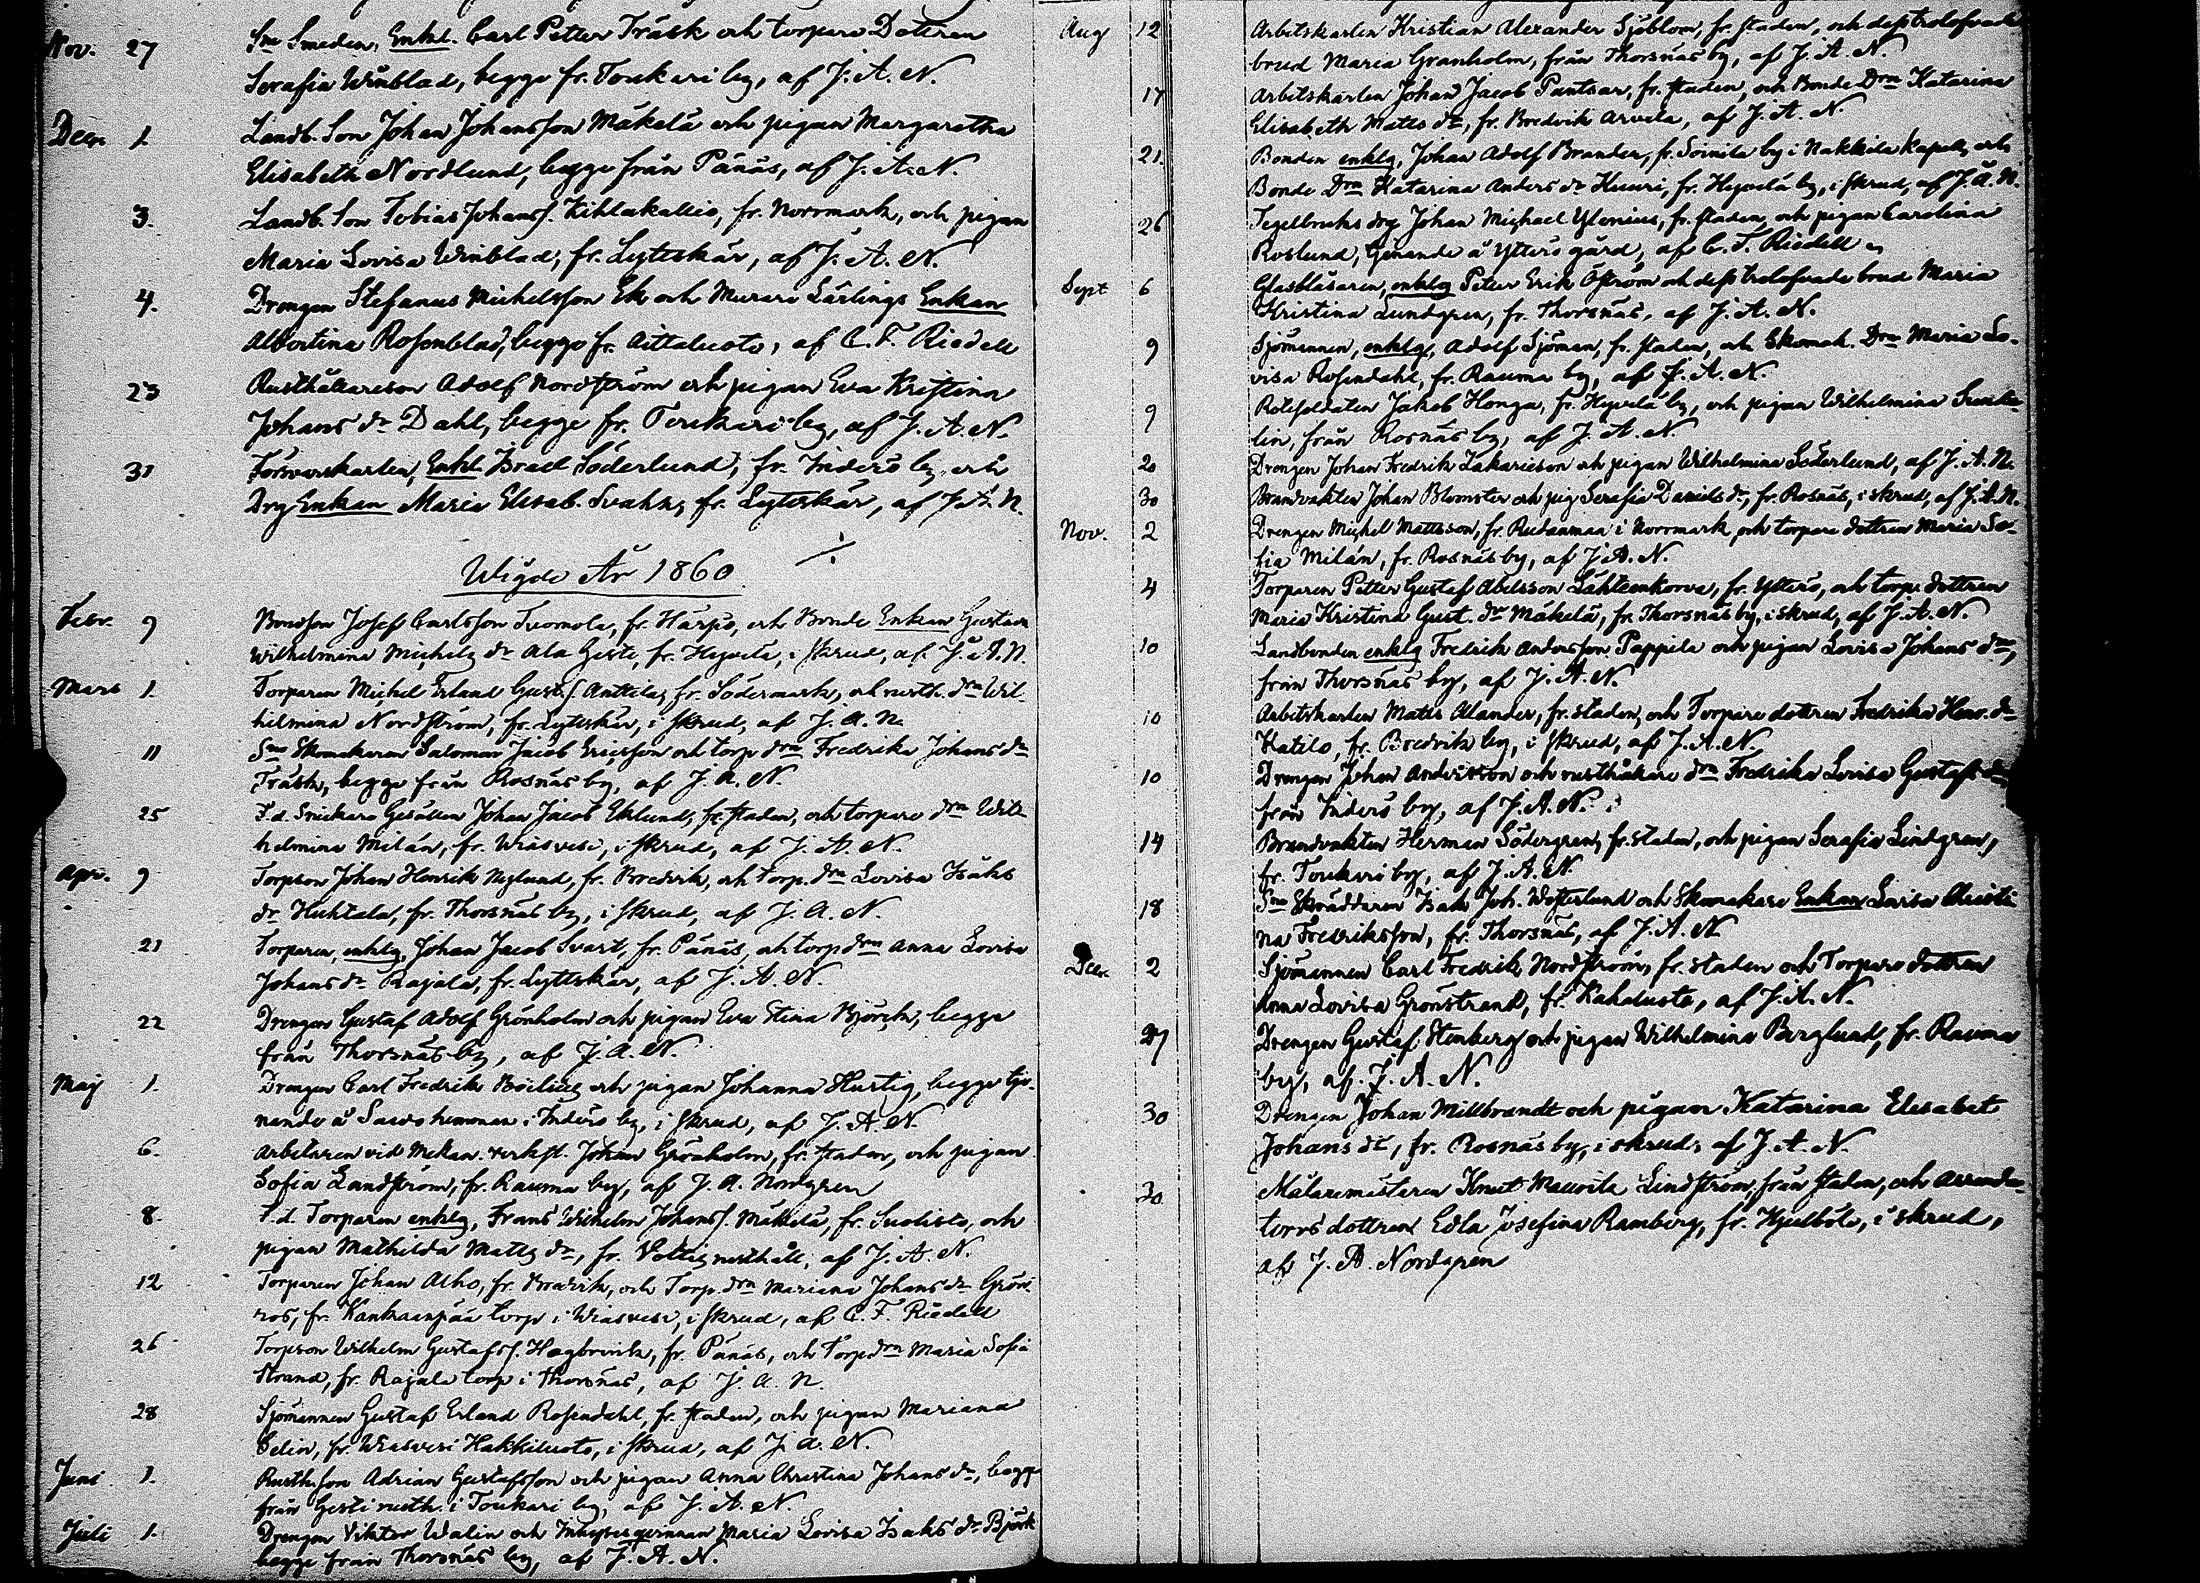 Nov. 27 Sne Smeden, Enkl. Carl Petter Träsk och torpare Dottren
Serafia Winblad, begge fr. Toukari by, af J. A. N.
Decr 1 Landb. Son Johan Johansson Mäkelä och pigan Margaretha
Elisabeth Nordlund, begge från Pänäs, af J. A. N.
3. Landb. Son Tobias Johanss. Kihlakallio, fr. Norrmark, och pigan
Maria Lovisa Winblad, fr. Lyttskär, af J. A. N.
4. Drengen Stefanus Michelsson Ek och Murare Lärlings Enkan
Albertina Rosenblad, begge fr. Aittaluoto, af C. F. Riedell
23 Rusthållareson Adolf Nordström och pigan Eva Kristina
Johans dr Dahl, begge fr. Toukari by, af J. A. N.
31 Försvarskarlen, Enkl Israel Söderlund, fr. Inderö by och
Drg Enkan Maria Elisab. Svahn, fr. Lyttskär, af J. A. N.
Wigde År 1860
Febr. 9 Bondson Josef Carlsson Tuomola, fr. Harpö, och Bonde Enkan Gustava
Wilhelmina Michels dr Ala Gisti, fr. Hyvelä, i skrud, af J. A. N.
Mars 1. Torparen Michel Erland Gusts. Anttila, fr. Södermark, och rusth. drn Wil-
helmina Nordström, fr. Lyttskär, i skrud, af J. A. N.
11 Sne Skomakaren Salomon Jacob Ericsson och torp drn Fredrika Johans dr
Träsk, begge från Rosnäs by, af J. A. N.
25 F.d. Snickare Gesällen Johan Jacob Eklund, fr. staden, och torpare drn Wil-
helmina Milán, fr. Wiasvesi, i skrud, af J. A. N.
Apr. 9 Torpson Johan Henrik Nyglund, fr. Bredvik, och torp. drn Lovisa Isaks
dr Huhtala, fr. Thorsnäs by, i skrud, af J. A. N.
21 Torparen, enklg, Johan Jacob Svart, fr. Pänäs, och torp drn Anna Lovisa
Johans dr Rajala, fr. Lyttskär, af J. A. N.
22 Drengen Gustaf Adolf Grönholm och pigan Eva Stina Björck, begge
från Thorsnäs by, af J. A. N.
Maj 1. Drengen Carl Fredrik Boelius och pigan Johanna Hurtig, begge tje-
nande å hemman i Inderö by, i skrud, af J. A. N.
6. Arbetaren vid Mekan. verkst. Johan Grönholm, fr. staden, och pigan
Sofia Landström, fr. Rauma by, af J. A. Nordgren
8. F.d. Torparen enklg, Frans Wilhelm Johanss. Mäkelä, fr. Suolisto, och
pigan Mathilda Matts dr, fr. rusthåll, af J. A. N.
12 Torparen Johan Alho, fr. Bredvik, och Torp. drn Mariana Johans dr Grön-
ros, fr. Kankaanpää torp i Wiasvesi, i skrud, af C. F. Riedell
26 Torpson Wilhelm Gustafss. Hagbrink, fr. Pänäs, och Torp drn Maria Sofia
Strand, fr. Rajala torp i Thorsnäs, af J. A. N.
28 Sjömannen Gustaf Erland Rosendahl, fr. staden, och pigan Mariana
Selin, fr. Wiasvesi Hakkiluoto, i skrud, af J. A. N.
Juni 1. Rusth. son Adrian Gustafsson och pigan Anna Christina Johans dr, begge
från Gisti rusth. i Toukari by, af J. A. N.
Juli 1. Drengen Viktor Walin och Inhyseqvinnan Maria Lovisa Isaks dr Björk
begge från Thorsnäs by, af J. A. N.
Aug 12 Arbetskarlen Kristian Alexander Sjöblom, fr. staden, och dess trolofvade
brud Maria Granholm, från Thorsnäs by, af J. A. N.
17 Arbetskarlen Johan Jacob Pantsar, fr. staden, och Bonde Drn Katarina
Elisabeth Matts dr, fr. Bredvik Arvela, af J. A. N.
21. Bonden enklg, Johan Adolf Brander, fr. Soinila by i Nakkila kapell, och
Bonde Drn Katarina Anders dr Kuuri, fr. Hyvelä by, i skrud, af J. A. N.
26 Tegelbruks drg Johan Michael Ylenius, fr. staden, och pigan Carolina
Roslund, tjenande å Ytterö gård, af C. F. Riedell
Sept 6 Glasblåsaren, enklg Petter Erik Öström och dess trolofvade brud Maria
Kristina Lundgren, fr. Thorsnäs, af J. A. N.
9 Sjömannen, enklg, Adolf Sjöman, fr. staden, och Skomak. Drn Maria Lo-
visa Rosendahl, fr. Rauma by, af J. A. N.
9 Rotesoldaten Jakob Honga, fr. Hyvelä by, och pigan Wilhelmina
lin, från Rosnäs by, af J. A. N.
20 Drengen Johan Fredrik Zakariesson och pigan Wilhelmina Söderlund, af J. A. N.
30 Brandvakten Johan Blomster och pig Serafia Daniels dr, fr. Rosnäs, i skrud, af J. A. N.
Nov. 2 Drengen Michel Mattsson, fr. Rudanmaa i Norrmark, och torpare dottren Maria So-
fia Milán, fr. Rosnäs by, af J. A. N.
4 Torparen Petter Gustaf Abelsson Lähteenkorva, fr. Ytterö, och torp. dottren
Maria Kristina Gust. dr Mäkelä, fr. Thorsnäs by, i skrud, af J. A. N.
10 Landbonden enklg Fredrik Andersson Pappila och pigan Lovisa Johans dr,
från Thorsnäs by, af J. A. N.
10 Arbetskarlen Matts Alander, fr. staden, och Torpare dottren Fredrika Henr. dr
Katilo, fr. Bredvik by, i skrud, af J. A. N.
10 Drengen Johan Andersson och rusthållare drn Fredrika Lovisa Gustafs dr
från Inderö by, af J. A. N.
14 Brandvakten Herman Södergren, fr. staden, och pigan Serafia Lindgren,
fr. Toukari by, af J. A. N.
18 Sne Skräddaren Isak Joh. Westerlund och Skomakare Enkan Lovisa Christi-
na Fredriksson, fr. Thorsnäs, af J. A. N.
Decr 2 Sjömannen Carl Fredrik Nordström, fr. staden och Torpare dottren
Anna Lovisa Grönstrand, fr. Kahaluoto, af J. A. N.
27 Drengen Gustaf Stenberg och pigan Wilhelmina Berglund, fr. Rauma
by, af J. A. N.
30 Drengen Johan Millbrandt och pigan Katarina Elisabet
Johans dr, fr. Rosnäs by, i skrud, af J. A. N.
30 Målaremästaren Knut Mauritz Lindström, från staden, och Arrenda-
tors dottren Edla Josefina Ramberg, fr. Hjulböle, i skrud,
af J. A. Nordgren